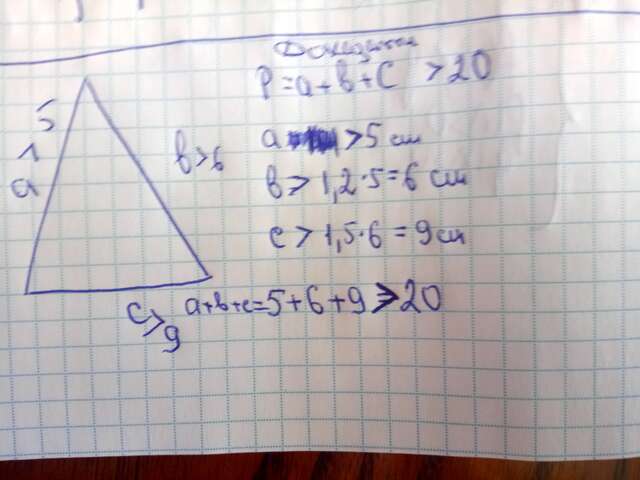 Доведення
P=a+b+c >20
a >5 см
b > 1,2·5=6 см
c > 1,5·6=9 см
a+b+c=5+6+9>20
a > 5
b>6
c>9